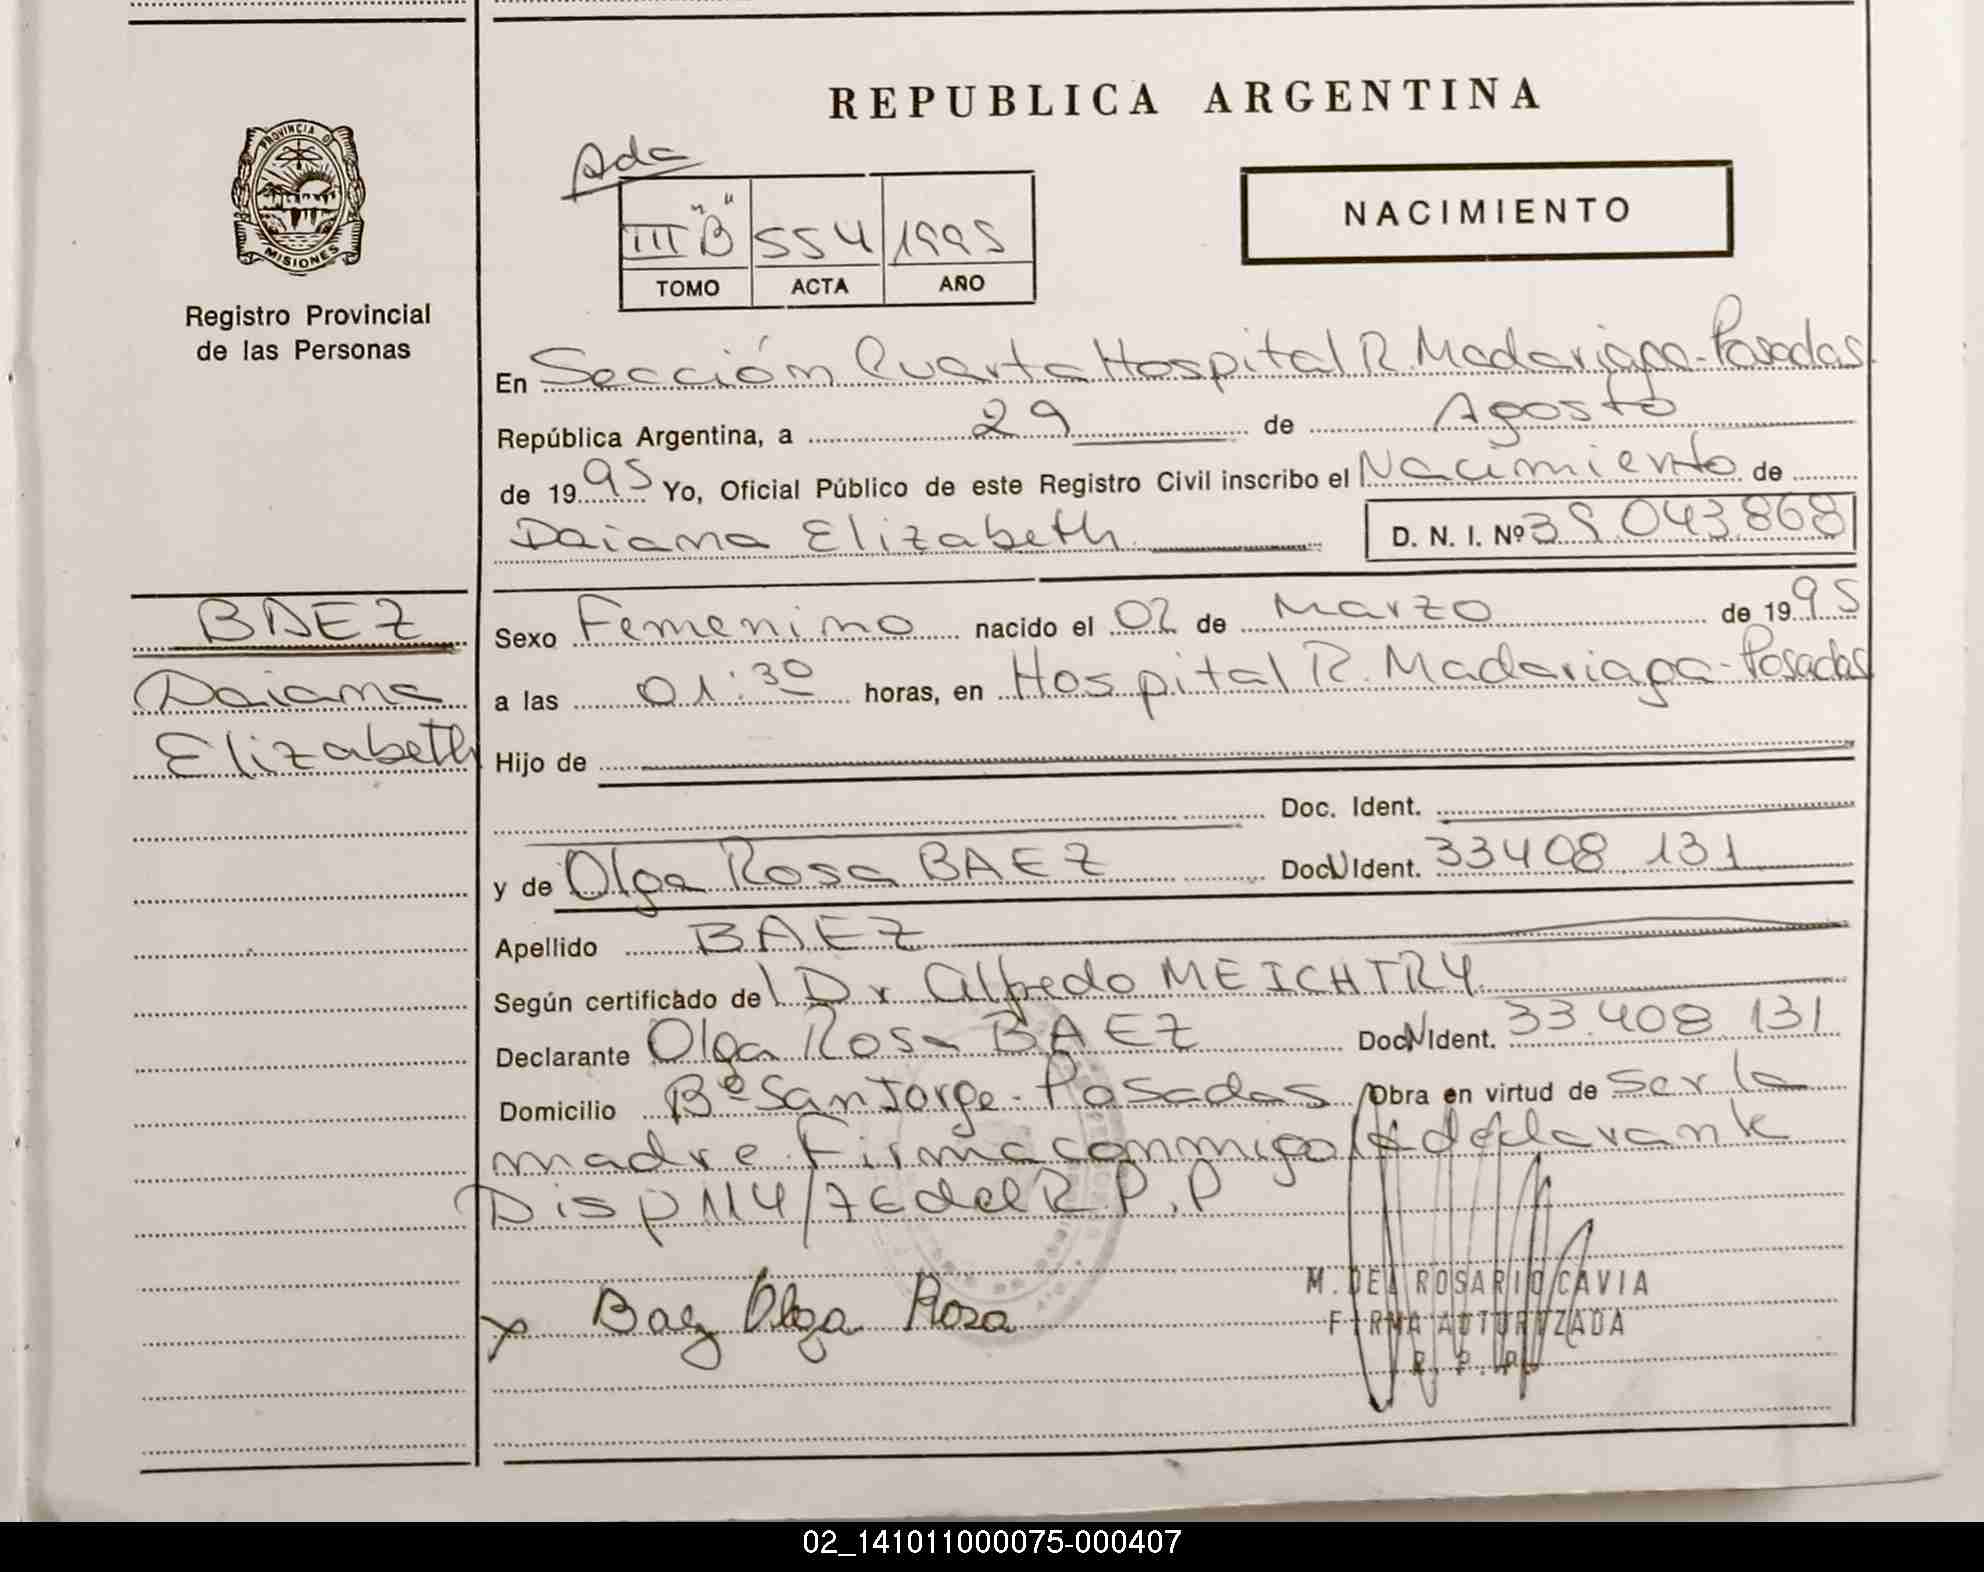 REPUBLICA ARGENTINA
PROVINCIA DE
MISIONES
Registro Provincial
de las Personas
Ada
III "B" 554 1995
TOMO ACTA AÑO
NACIMIENTO
En Sección Cuarta Hospital R. Madariaga-Posadas.
República Argentina, a 29 de Agosto
de 1995 Yo, Oficial Público de este Registro Civil inscribo el Nacimiento de
Daiana Elizabeth D. N. I. Nº 39.043.868
BAEZ
Daiana
Elizabeth
Sexo Femenino nacido el 02 de Marzo de 1995
a las 01:30 horas, en Hospital R. Madariaga-Posadas
Hijo de
Doc. Ident.
y de Olga Rosa BAEZ Doc. Ident. 33408 131
Apellido BAEZ
Según certificado del Dr Alfredo MEICHTRY
Declarante Olga Rosa BAEZ Doc. Ident. 33.408 131
Domicilio Bº San Jorge - Posadas Obra en virtud de ser la
madre. Firma conmigo la declarante
Disp 114/76 del R.P.P
x Baez Olga Rosa
M. DEL ROSARIO CAVIA
FIRMA AUTORIZADA
R. P. P.
02_141011000075-000407